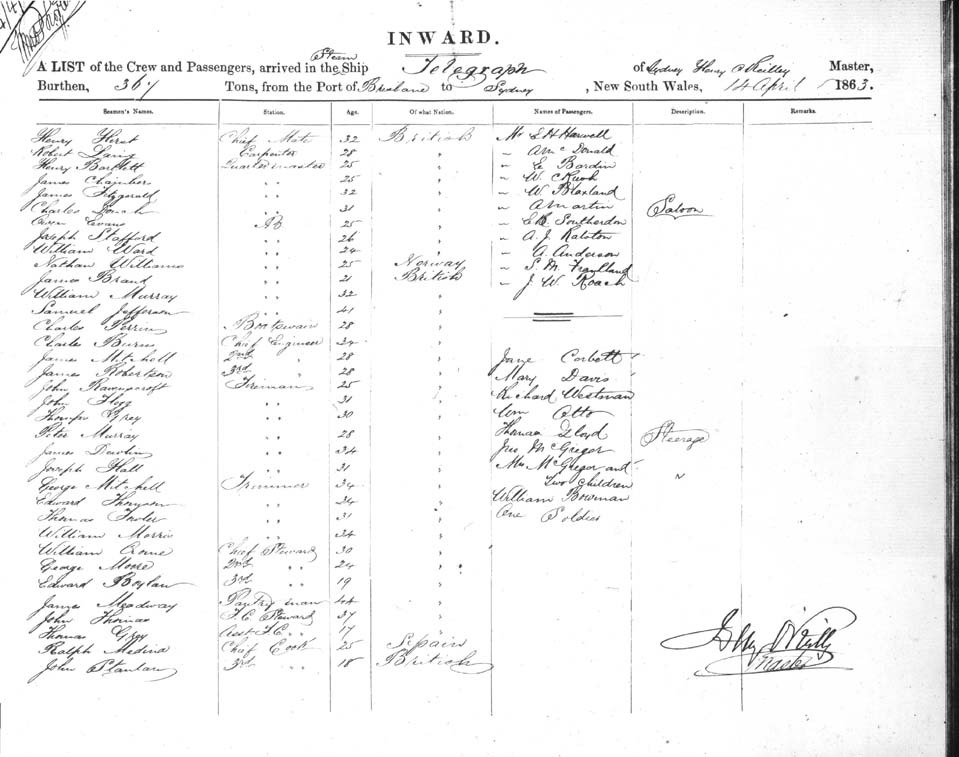 INWARD.
A LIST of the Crew and Passengers, arrived in the Steam Ship Telegraph of Sydney Henry O'Reilley Master,
Burthen, 367 Tons, from the Port of Brisbane to Sydney, New South Wales, 14 April 1863.
Seamen's Names. Station. Age. Of what Nation. Names of Passengers. Description. Remarks.
Henry Hurst Chief Mate 32 British Mr E H Harwell
Robert Laing Carpenter 28 " " A Mc Donald
Henry Bartlett Quartermaster 25 " " E Bardin
James Chambers " 25 " " W
James Fitzgerald " 32 " " W Blaxland
Charles " 31 " " A Martin Saloon
Owen Evans AB 25 " " Southerdon
Joseph Stafford " 26 " " A. J. Ralston
William Ward " 24 " " A. Anderson
Nathan Williams " 25 Norway " S. M.
James Brand " 21 British " J W Roach
William Murray " 32 "
Samuel Jefferson " 41 "
Charles Perrin Boatswain 28 "
Charles Burns Chief Engineer 34 "
James Mitchell 2nd " 28 " Jane Corbett
James Robertson 3rd " 28 " Mary Davis
John Ravenscroft Fireman 25 " Richard Westman
John " 31 " Wm Otto
Thomas Grey " 30 " Thomas Lloyd
Peter Murray " 28 " Jno McGregor Steerage
James " 34 " Mrs McGregor and
Joseph Hall " 31 " Two Children "
George Mitchell Trimmer 34 " William Bowman
Edward Thompson " 34 " One Soldier
Thomas Fowler " 31 "
William Morris " 34 "
William Crome Chief Steward 30 "
George Moore 2nd " 24 "
Edward Boylan 3rd " 19 "
James Meadway Pantry man 44 "
John Thomas F. C. Steward 37 "
Thomas Asst F. C. " 17 "
Ralph Medina Chief Cook 25 Spain
John Stanton 3rd " 18 British
O'Reilly
Master